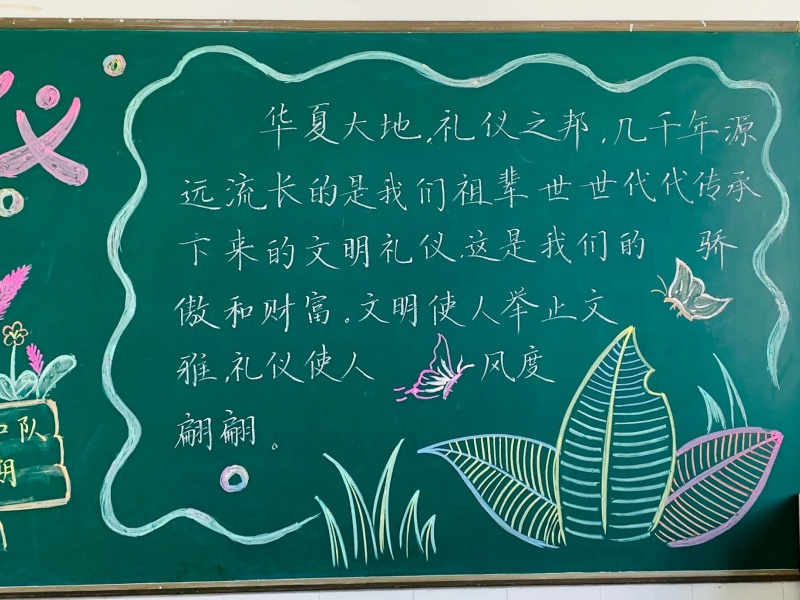 仪
华夏大地,礼仪之邦,几千年源
远流长的是我们祖辈世世代代传承
下来的文明礼仪,这是我们的 骄
傲和财富。文明使人举止文
雅,礼仪使人 风度
翩翩。
队
期